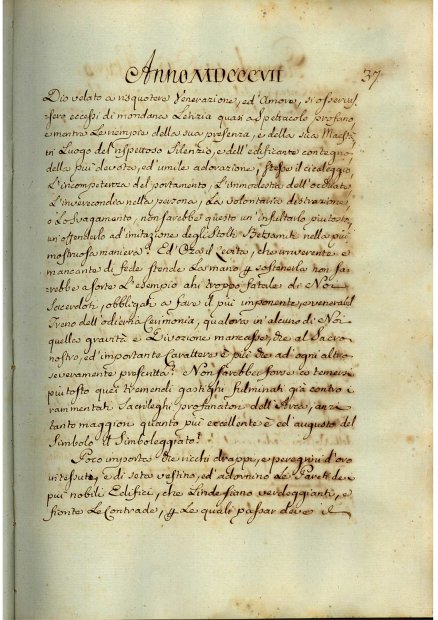 Anno MDCCCVII
37
Dio velato a risquotere Venerazione, ed'Amore, si osservas
sero eccessi di mondana Letizia quasi a Spetracolo profano,
e mentre Le riempie della sua presenza, e della sua Maestà
in Luogo del rispettoso Silenzio, e dell'edificante contegno
della piu' devota, ed'umile adorazione, stesse il cicaleggio,
L'incompetenza del portamento, L'immodestia dell'occhiate
L'inverecondia nella persona, La volontaria distrazione,
o Lo Svagamento, non sarebbe questo un'insultarlo piuttosto,
un'offenderlo ad'imitazione degli Stolti Betsamiti nella più
mostruosa maniera? Ed'Oza il Levita, che irriverente e
mancante di fede stende La mano p sostenerla non sa-
rebbe a sorte L'esempio ahi troppo fatale di Noi
Sacerdoti, obbligati a fare il più imponente, e venerabil
Treno dell'odierna Cerimonia, qualora in alcuno di Noi
quella gravità e Divozione mancasse, che al Sacro
nostro, ed'importante Carattere è più che ad'ogni altro
severamente prescritta? Non sarebber forse da temersi
piutosto quei tremendi gastighi fulminati già contro i
rammentati Sacrileghi profanatori dell'Arca, anzi
tanto maggiori quanto piu' eccellente è ed'augusto del
Simbolo il Simboleggiato?
Poco importa che ricchi drappi, e peregrini d'oro
intessuti, e di seta vestino, ed'adornino Le Pareti dei
piu' nobili Edifici, che Linde siano verdeggianti, e
fiorite Le Contrade, p Le quali passar deve il